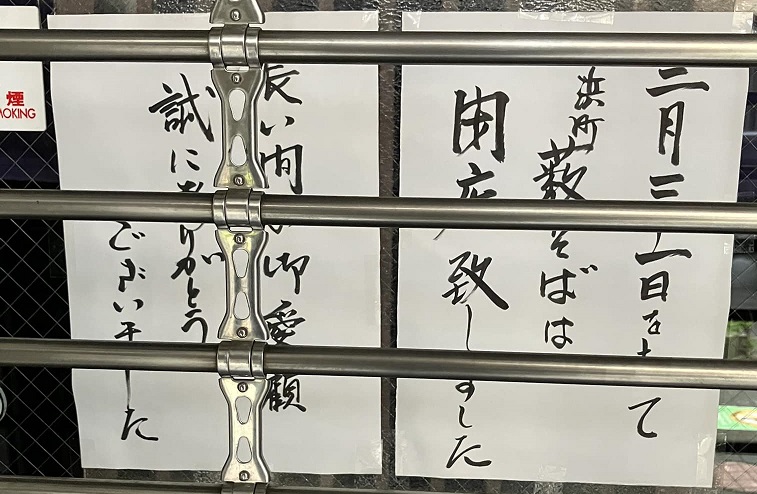 二月三十一日をもって
浜町 藪そばは
閉店致しました
長い間の御愛顧
試にありがとう
ございました
煙
MOKING